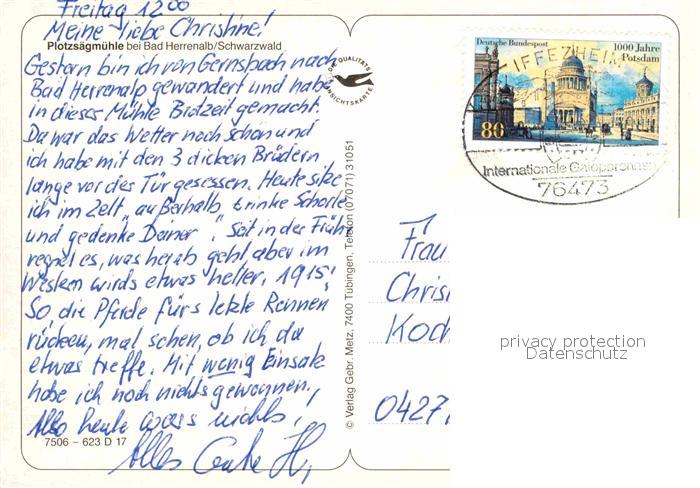 Freitag 12 00
Meine liebe Christine!
Plotzsägmühle bei Bad Herrenalb/Schwarzwald
Gestern bin ich von Gernsbach nach
Bad Herrenalp gewandert und habe
in dieser Mühle Brotzeit gemacht.
Da war das Wetter noch schön und
ich habe mit den 3 dicken Brüdern
lange vor der Tür gesessen. Heute sitze
ich im Zelt "außerhalb, trinke Schorle
und gedenke Deiner". Seit in der Früh
regnet es, was herab geht, aber im
Westen wirds etwas heller. 1915!
So, die Pferde fürs letzte Rennen
rücken, mal sehen, ob ich da
etwas treffe. Mit wenig Einsatz
habe ich noch nichts gewonnen.
Also heute wars nichts,
7506 – 623 D 17
Alles Gute H,
DIE QUALITÄTS
ANSICHTSKARTE
© Verlag Gebr. Metz, 7400 Tübingen, Telefon (07071) 31051
Deutsche Bundespost
1000 Jahre
Potsdam
80
IFFEZHEIM
Internationale Galopprennen
76473
Frau
Chris
Koch
0427
privacy protection
Datenschutz